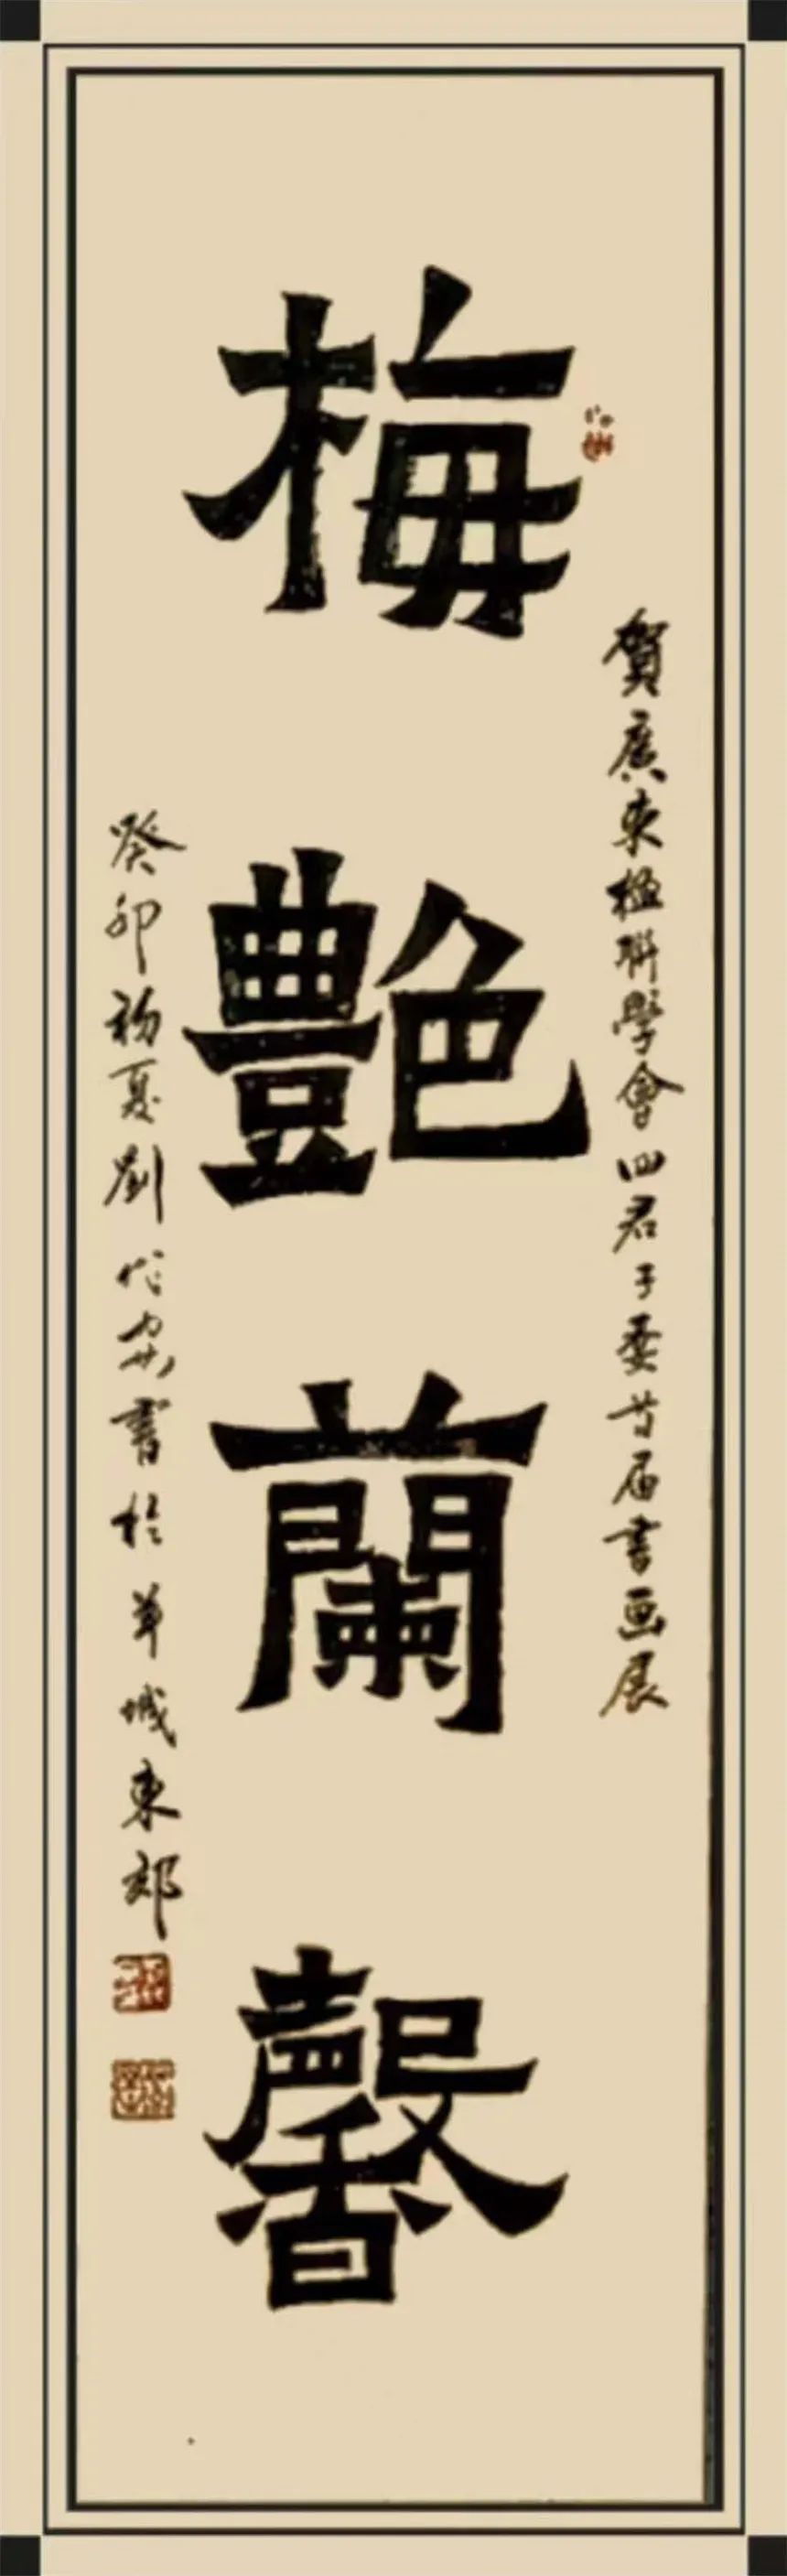 賀廣东楹聯學會四君子委首届書画展
梅艷蘭馨
癸卯初夏劉代安書於羊城東郊